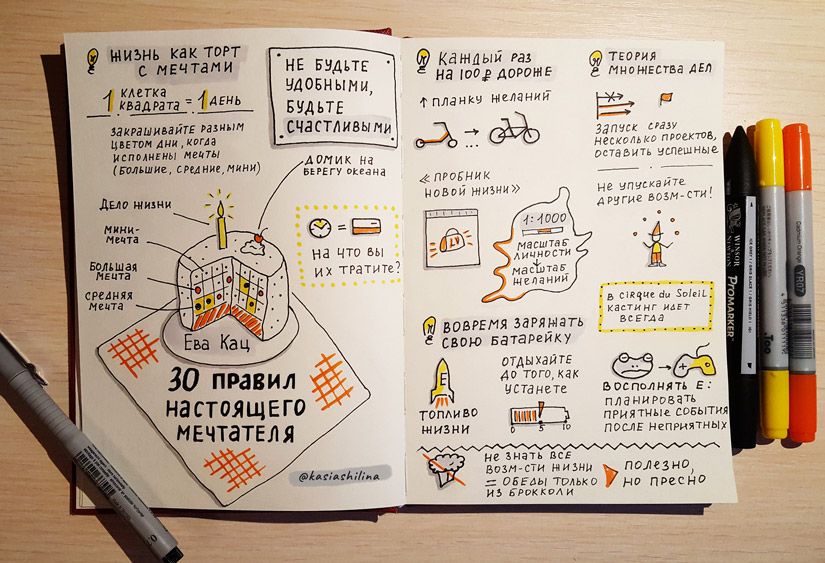 ЖИЗНЬ КАК ТОРТ
С МЕЧТАМИ
1 КЛЕТКА
КВАДРАТА = 1 ДЕНЬ
ЗАКРАШИВАЙТЕ РАЗНЫМ
ЦВЕТОМ ДНИ, КОГДА
ИСПОЛНЕНЫ МЕЧТЫ
(БОЛЬШИЕ, СРЕДНИЕ, МИНИ)
НЕ БУДЬТЕ
УДОБНЫМИ,
БУДЬТЕ
СЧАСТЛИВЫМИ
ДОМИК НА
БЕРЕГУ ОКЕАНА
ДЕЛО ЖИЗНИ
МИНИ-
МЕЧТА
БОЛЬШАЯ
МЕЧТА
СРЕДНЯЯ
МЕЧТА
=
НА ЧТО ВЫ
ИХ ТРАТИТЕ?
Ева Кац
30 ПРАВИЛ
НАСТОЯЩЕГО
МЕЧТАТЕЛЯ
@kasiashilina
КАЖДЫЙ РАЗ
НА 100 ₽ ДОРОЖЕ
↑ ПЛАНКУ ЖЕЛАНИЙ
...
«ПРОБНИК
НОВОЙ ЖИЗНИ»
LV
1:1000
МАСШТАБ
ЛИЧНОСТИ
↓
МАСШТАБ
ЖЕЛАНИЙ
ВОВРЕМЯ ЗАРЯЖАТЬ
СВОЮ БАТАРЕЙКУ
E
ТОПЛИВО
ЖИЗНИ
ОТДЫХАЙТЕ
ДО ТОГО, КАК
УСТАНЕТЕ
0 5 10
ТЕОРИЯ
МНОЖЕСТВА ДЕЛ
ЗАПУСК СРАЗУ
НЕСКОЛЬКО ПРОЕКТОВ,
ОСТАВИТЬ УСПЕШНЫЕ
НЕ УПУСКАЙТЕ
ДРУГИЕ ВОЗМ-СТИ!
В CIRQUE du SOLEIL
КАСТИНГ ИДЕТ
ВСЕГДА
ВОСПОЛНЯТЬ Е:
ПЛАНИРОВАТЬ
ПРИЯТНЫЕ СОБЫТИЯ
ПОСЛЕ НЕПРИЯТНЫХ
НЕ ЗНАТЬ ВСЕ
ВОЗМ-СТИ ЖИЗНИ
= ОБЕДЫ ТОЛЬКО
ИЗ БРОККОЛИ
ПОЛЕЗНО,
НО ПРЕСНО
WINSOR
PROMARKER
.Too
YR07